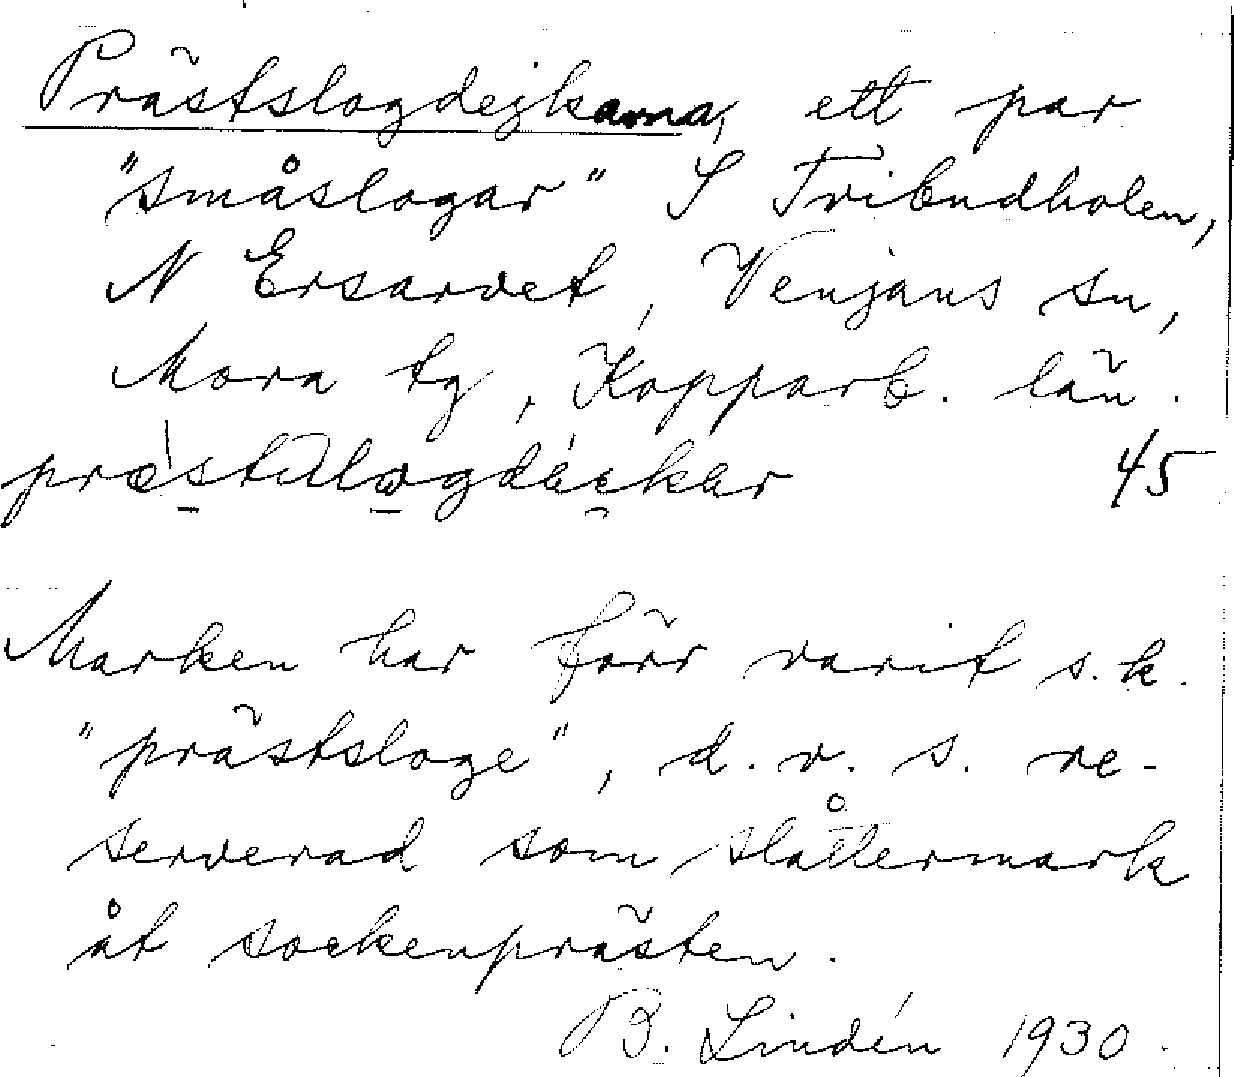 Prästslogdejkarna, ett par
"småslogar" S Tribudholen,
N Ersarvet, Venjans sn,
Mora tg, Kopparb. län.
45
Marken har förr varit s.k.
"prästsloge", d.v.s. re-
serverad som slåttermark
åt sockenprästen.
B. Lindén 1930.